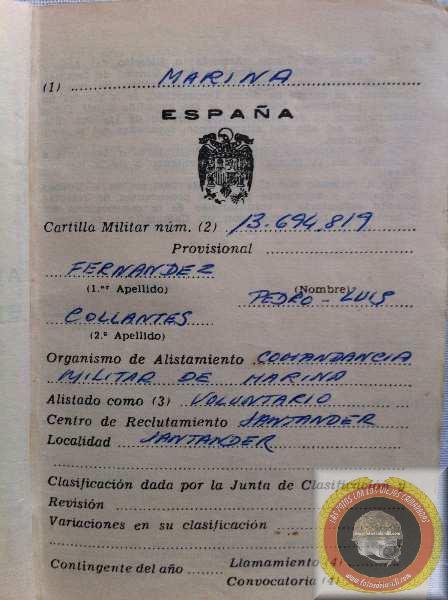 (1) MARINA
ESPAÑA
Cartilla Militar núm. (2) 13-694.819
Provisional
FERNANDEZ
(1.er Apellido)
(Nombre)
PEDRO-LUIS
COLLANTES
(2.º Apellido)
Organismo de Alistamiento COMANDANCIA
MILITAR DE MARINA
Alistado como (3) VOLUNTARIO
Centro de Reclutamiento SANTANDER
Localidad SANTANDER
Clasificación dada por la Junta de Clasificación y
Revisión
Variaciones en su clasificación
Contingente del año Llamamiento (4)
Convocatoria (4)
LAS FOTOS CON LOS VIEJOS CAMARADAS
www.fotosdelamili.com